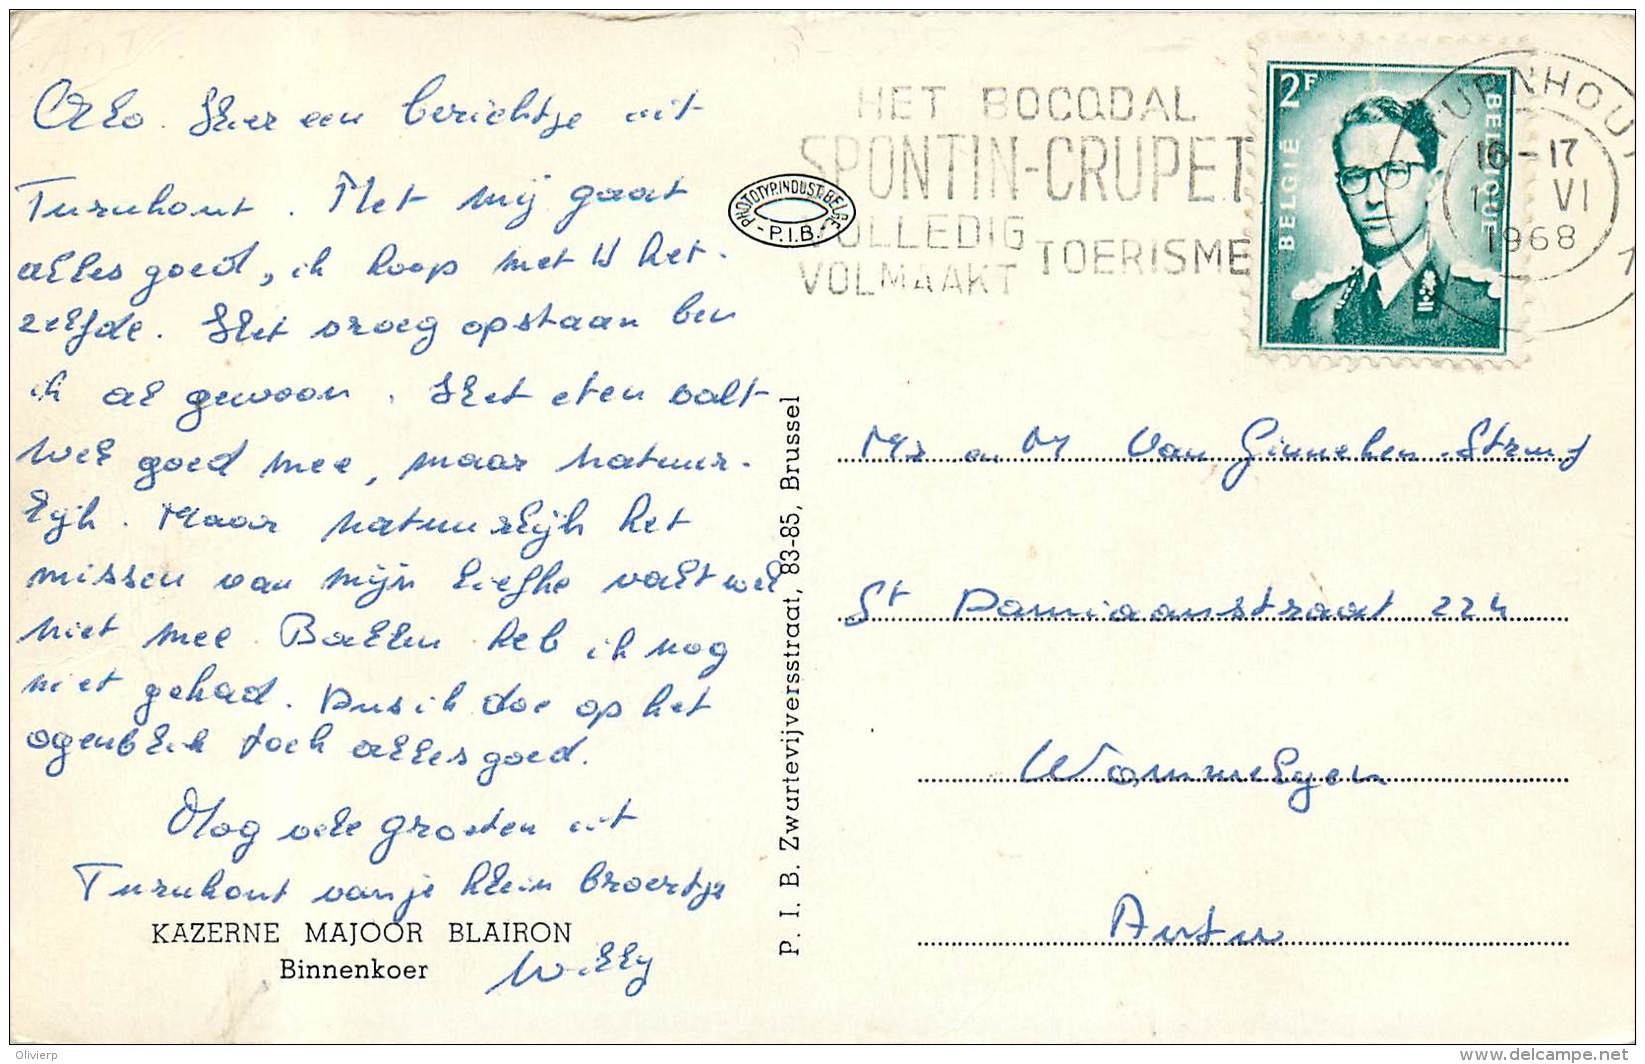 Allo. Hier een berichtje uit
Turnhout. Met mij gaat
alles goed, ik hoop met U het-
zelfde. Het vroeg opstaan ben
ik al gewoon. Het eten valt
wel goed mee, maar natuur-
lijk. Maar natuurlijk het
missen van mijn liefke valt wel
niet mee. Ballen heb ik nog
niet gehad. Dus ik doe op het
ogenblik toch alles goed.
Nog vele groeten uit
Turnhout van je klein broertje
Willy
KAZERNE MAJOOR BLAIRON
Binnenkoer
PHOTOTYP.INDUST.BELGE
- P.I.B. -
P. I. B. Zwartevijversstraat, 83-85, Brussel
HET BOCQDAL
SPONTIN-CRUPET
VOLLEDIG
VOLMAAKT TOERISME
2F
BELGIË
BELGIQUE
TURNHOUT
16-17
VI
1968
Mr en M Van Ginneken-Struyf
St Damiaanstraat 224
Wommelgem
Antw
Olivierp
http://www.delcampe.net